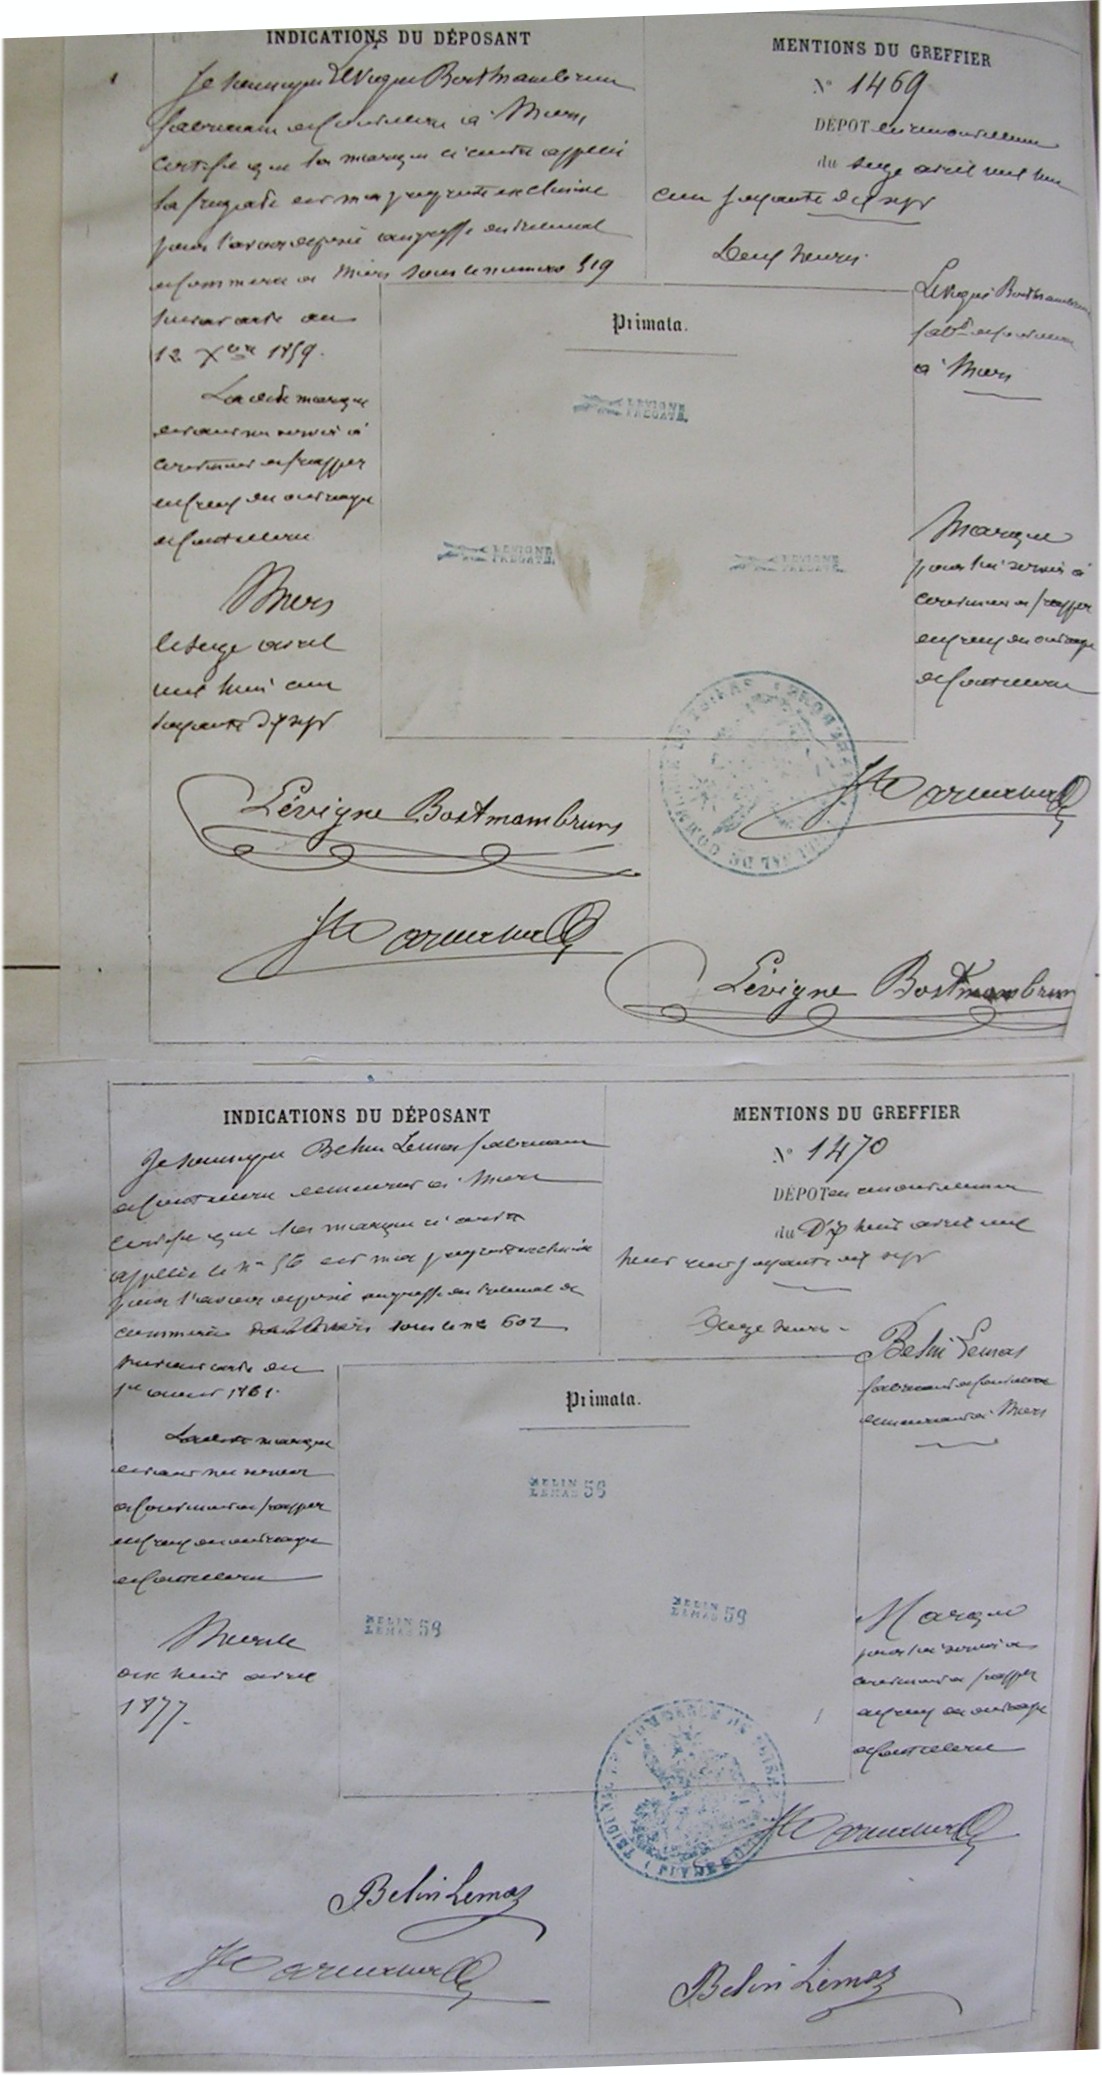 INDICATIONS DU DÉPOSANT
Je soussigné Lévigne Bostmambrun
fabricant de Coutellerie à Thiers
certifie que la marque ci contre appelée
la frégate est ma propriété exclusive
pour l'avoir déposée au greffe du tribunal
de Commerce de Thiers sous le numero 519
suivant acte du
12 Xbre 1859.
La dite marque
devant me servir à
continuer de frapper
en creux des ouvrages
de Coutellerie
Thiers
le seize avril
mil huit cent
soixante dix sept
Lévigne Bostmambrun
MENTIONS DU GREFFIER
N° 1469
DÉPOT en renouvellement
du seize avril mil huit
cent soixante dix sept
heures.
Lévigne Bostmambrun
fabt de Coutellerie
à Thiers
Primata.
LEVIGNE
FREGATE.
LEVIGNE
FREGATE.
LEVIGNE
FREGATE.
Marque
pour lui servir à
continuer de frapper
en creux des ouvrages
de Coutellerie
TRIBUNAL DE COMMERCE DE THIERS
Lévigne Bostmambrun
INDICATIONS DU DÉPOSANT
Je soussigné Belin Lemas fabricant
de Coutellerie demeurant à Thiers
certifie que la marque ci contre
appellée le n° 56 est ma propriété exclusive
pour l'avoir déposée au greffe du tribunal de
commerce de Thiers sous le n° 602
suivant acte du
1861.
La dite marque
devant me servir
à continuer de frapper
en creux des ouvrages
de Coutellerie
Thiers le
dix huit avril
1877.
Belin Lemas
MENTIONS DU GREFFIER
N° 1470
DÉPOT en renouvellement
du Dix huit avril mil
huit cent soixante dix sept
heures
Belin Lemas
fabricant de Coutellerie
demeurant à Thiers
Primata.
BELIN
LEMAS 56
BELIN
LEMAS 56
BELIN
LEMAS 56
Marque
pour lui servir à
continuer de frapper
en creux des ouvrages
de Coutellerie
TRIBUNAL DE COMMERCE DE THIERS
Belin Lemas